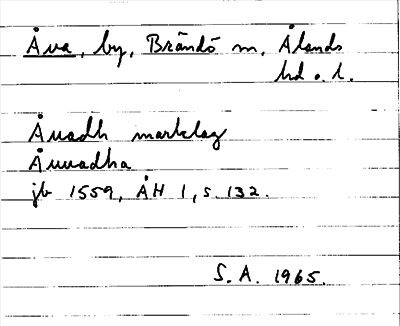 Åva, by, Brändö sn, Ålands
hd o. l.
Åuadh marklag
Åuuadha
jb 1559, ÅH 1, s. 132.
S. A. 1965.